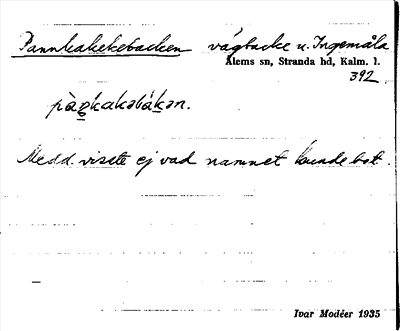 Pannkakebacken vägbacke u. Ingemåla
Ålems sn, Stranda hd, Kalm. l.
392
Medd. visste ej vad namnet kunde bet.
Ivar Modéer 1935